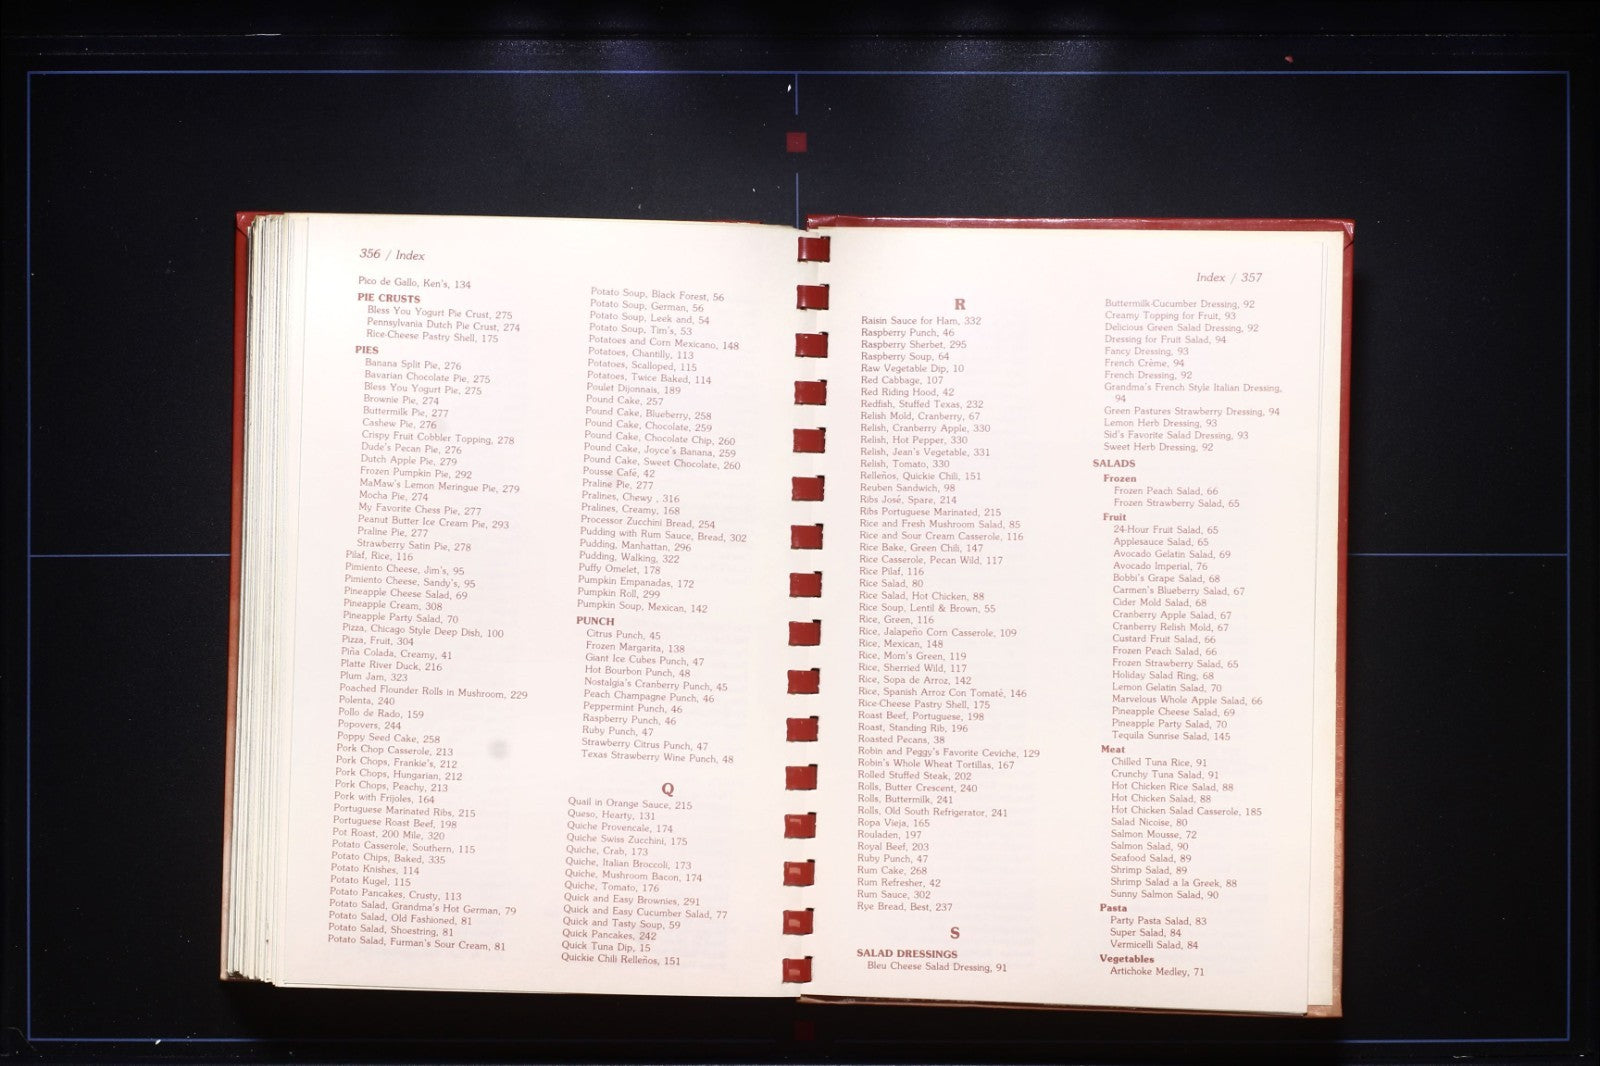 356 / Index
Pico de Gallo, Ken's, 134
PIE CRUSTS
Bless You Yogurt Pie Crust, 275
Pennsylvania Dutch Pie Crust, 274
Rice-Cheese Pastry Shell, 175
PIES
Banana Split Pie, 276
Bavarian Chocolate Pie, 275
Bless You Yogurt Pie, 275
Brownie Pie, 274
Buttermilk Pie, 277
Cashew Pie, 276
Crispy Fruit Cobbler Topping, 278
Dude's Pecan Pie, 276
Dutch Apple Pie, 279
Frozen Pumpkin Pie, 292
MaMaw's Lemon Meringue Pie, 279
Mocha Pie, 274
My Favorite Chess Pie, 277
Peanut Butter Ice Cream Pie, 293
Praline Pie, 277
Strawberry Satin Pie, 278
Pilaf, Rice, 116
Pimiento Cheese, Jim's, 95
Pimiento Cheese, Sandy's, 95
Pineapple Cheese Salad, 69
Pineapple Cream, 308
Pineapple Party Salad, 70
Pizza, Chicago Style Deep Dish, 100
Pizza, Fruit, 304
Piña Colada, Creamy, 41
Platte River Duck, 216
Plum Jam, 323
Poached Flounder Rolls in Mushroom, 229
Polenta, 240
Pollo de Rado, 159
Popovers, 244
Poppy Seed Cake, 258
Pork Chop Casserole, 213
Pork Chops, Frankie's, 212
Pork Chops, Hungarian, 212
Pork Chops, Peachy, 213
Pork with Frijoles, 164
Portuguese Marinated Ribs, 215
Portuguese Roast Beef, 198
Pot Roast, 200 Mile, 320
Potato Casserole, Southern, 115
Potato Chips, Baked, 335
Potato Knishes, 114
Potato Kugel, 115
Potato Pancakes, Crusty, 113
Potato Salad, Grandma's Hot German, 79
Potato Salad, Old Fashioned, 81
Potato Salad, Shoestring, 81
Potato Salad, Furman's Sour Cream, 81
Potato Soup, Black Forest, 56
Potato Soup, German, 56
Potato Soup, Leek and, 54
Potato Soup, Tim's, 53
Potatoes and Corn Mexicano, 148
Potatoes, Chantilly, 113
Potatoes, Scalloped, 115
Potatoes, Twice Baked, 114
Poulet Dijonnais, 189
Pound Cake, 257
Pound Cake, Blueberry, 258
Pound Cake, Chocolate, 259
Pound Cake, Chocolate Chip, 260
Pound Cake, Joyce's Banana, 259
Pound Cake, Sweet Chocolate, 260
Pousse Café, 42
Praline Pie, 277
Pralines, Chewy , 316
Pralines, Creamy, 168
Processor Zucchini Bread, 254
Pudding with Rum Sauce, Bread, 302
Pudding, Manhattan, 296
Pudding, Walking, 322
Puffy Omelet, 178
Pumpkin Empanadas, 172
Pumpkin Roll, 299
Pumpkin Soup, Mexican, 142
PUNCH
Citrus Punch, 45
Frozen Margarita, 138
Giant Ice Cubes Punch, 47
Hot Bourbon Punch, 48
Nostalgia's Cranberry Punch, 45
Peach Champagne Punch, 46
Peppermint Punch, 46
Raspberry Punch, 46
Ruby Punch, 47
Strawberry Citrus Punch, 47
Texas Strawberry Wine Punch, 48
Q
Quail in Orange Sauce, 215
Queso, Hearty, 131
Quiche Provencale, 174
Quiche Swiss Zucchini, 175
Quiche, Crab, 173
Quiche, Italian Broccoli, 173
Quiche, Mushroom Bacon, 174
Quiche, Tomato, 176
Quick and Easy Brownies, 291
Quick and Easy Cucumber Salad, 77
Quick and Tasty Soup, 59
Quick Pancakes, 242
Quick Tuna Dip, 15
Quickie Chili Relleños, 151
Index / 357
R
Raisin Sauce for Ham, 332
Raspberry Punch, 46
Raspberry Sherbet, 295
Raspberry Soup, 64
Raw Vegetable Dip, 10
Red Cabbage, 107
Red Riding Hood, 42
Redfish, Stuffed Texas, 232
Relish Mold, Cranberry, 67
Relish, Cranberry Apple, 330
Relish, Hot Pepper, 330
Relish, Jean's Vegetable, 331
Relish, Tomato, 330
Relleños, Quickie Chili, 151
Reuben Sandwich, 98
Ribs José, Spare, 214
Ribs Portuguese Marinated, 215
Rice and Fresh Mushroom Salad, 85
Rice and Sour Cream Casserole, 116
Rice Bake, Green Chili, 147
Rice Casserole, Pecan Wild, 117
Rice Pilaf, 116
Rice Salad, 80
Rice Salad, Hot Chicken, 88
Rice Soup, Lentil & Brown, 55
Rice, Green, 116
Rice, Jalapeño Corn Casserole, 109
Rice, Mexican, 148
Rice, Mom's Green, 119
Rice, Sherried Wild, 117
Rice, Sopa de Arroz, 142
Rice, Spanish Arroz Con Tomaté, 146
Rice-Cheese Pastry Shell, 175
Roast Beef, Portuguese, 198
Roast, Standing Rib, 196
Roasted Pecans, 38
Robin and Peggy's Favorite Ceviche, 129
Robin's Whole Wheat Tortillas, 167
Rolled Stuffed Steak, 202
Rolls, Butter Crescent, 240
Rolls, Buttermilk, 241
Rolls, Old South Refrigerator, 241
Ropa Vieja, 165
Rouladen, 197
Royal Beef, 203
Ruby Punch, 47
Rum Cake, 268
Rum Refresher, 42
Rum Sauce, 302
Rye Bread, Best, 237
S
SALAD DRESSINGS
Bleu Cheese Salad Dressing, 91
Buttermilk-Cucumber Dressing, 92
Creamy Topping for Fruit, 93
Delicious Green Salad Dressing, 92
Dressing for Fruit Salad, 94
Fancy Dressing, 93
French Crème, 94
French Dressing, 92
Grandma's French Style Italian Dressing,
94
Green Pastures Strawberry Dressing, 94
Lemon Herb Dressing, 93
Sid's Favorite Salad Dressing, 93
Sweet Herb Dressing, 92
SALADS
Frozen
Frozen Peach Salad, 66
Frozen Strawberry Salad, 65
Fruit
24-Hour Fruit Salad, 65
Applesauce Salad, 65
Avocado Gelatin Salad, 69
Avocado Imperial, 76
Bobbi's Grape Salad, 68
Carmen's Blueberry Salad, 67
Cider Mold Salad, 68
Cranberry Apple Salad, 67
Cranberry Relish Mold, 67
Custard Fruit Salad, 66
Frozen Peach Salad, 66
Frozen Strawberry Salad, 65
Holiday Salad Ring, 68
Lemon Gelatin Salad, 70
Marvelous Whole Apple Salad, 66
Pineapple Cheese Salad, 69
Pineapple Party Salad, 70
Tequila Sunrise Salad, 145
Meat
Chilled Tuna Rice, 91
Crunchy Tuna Salad, 91
Hot Chicken Rice Salad, 88
Hot Chicken Salad, 88
Hot Chicken Salad Casserole, 185
Salad Nicoise, 80
Salmon Mousse, 72
Salmon Salad, 90
Seafood Salad, 89
Shrimp Salad, 89
Shrimp Salad a la Greek, 88
Sunny Salmon Salad, 90
Pasta
Party Pasta Salad, 83
Super Salad, 84
Vermicelli Salad, 84
Vegetables
Artichoke Medley, 71